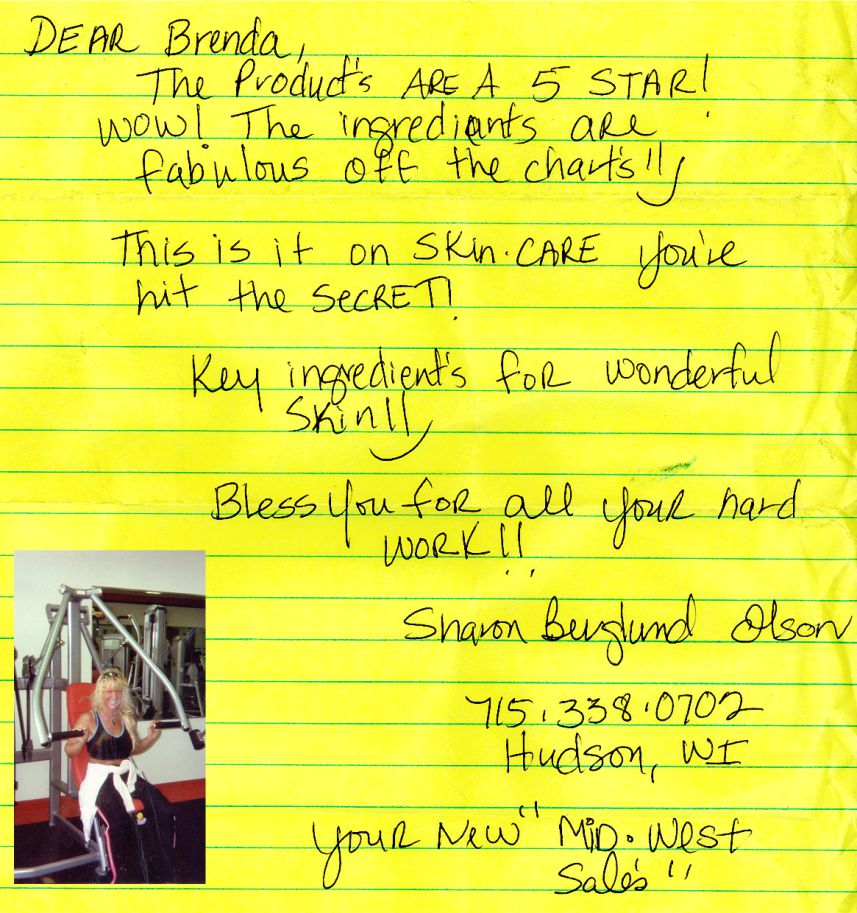 DEAR Brenda,
The Product's ARE A 5 STAR!
WOW! The ingrediants are
fabulous off the chart's!!
This is it on SKin-CARE you've
hit the SECRET!
Key ingredient's for wonderful
Skin!!
Bless you for all your hard
WORK!!
Sharon Berglund Olson
715.338.0702
Hudson, WI
Your New "Mid-West
Sales"